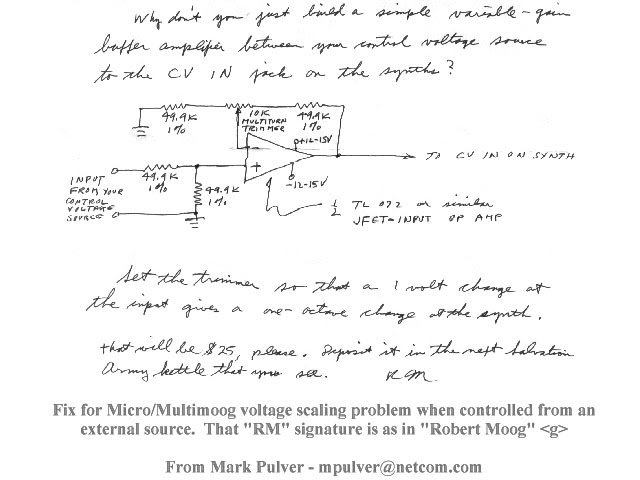 Why don't you just build a simple variable-gain
buffer amplifier between your control voltage source
to the CV IN jack on the synths?
49.9K
1%
10K
MULTITURN
TRIMMER
49.9K
1%
+12-15V
-
+
TO CV IN ON SYNTH
INPUT
FROM YOUR
CONTROL
VOLTAGE
SOURCE
49.9K
1%
49.9K
1%
-12-15V
1/2 TL 072 or similar
JFET-INPUT OP AMP
Set the trimmer so that a 1 volt change at
the input gives a one-octave change at the synth.
that will be $25, please. Deposit it in the next Salvation
Army kettle that you see. RM.
Fix for Micro/Multimoog voltage scaling problem when controlled from an
external source. That "RM" signature is as in "Robert Moog" <g>
From Mark Pulver - mpulver@netcom.com